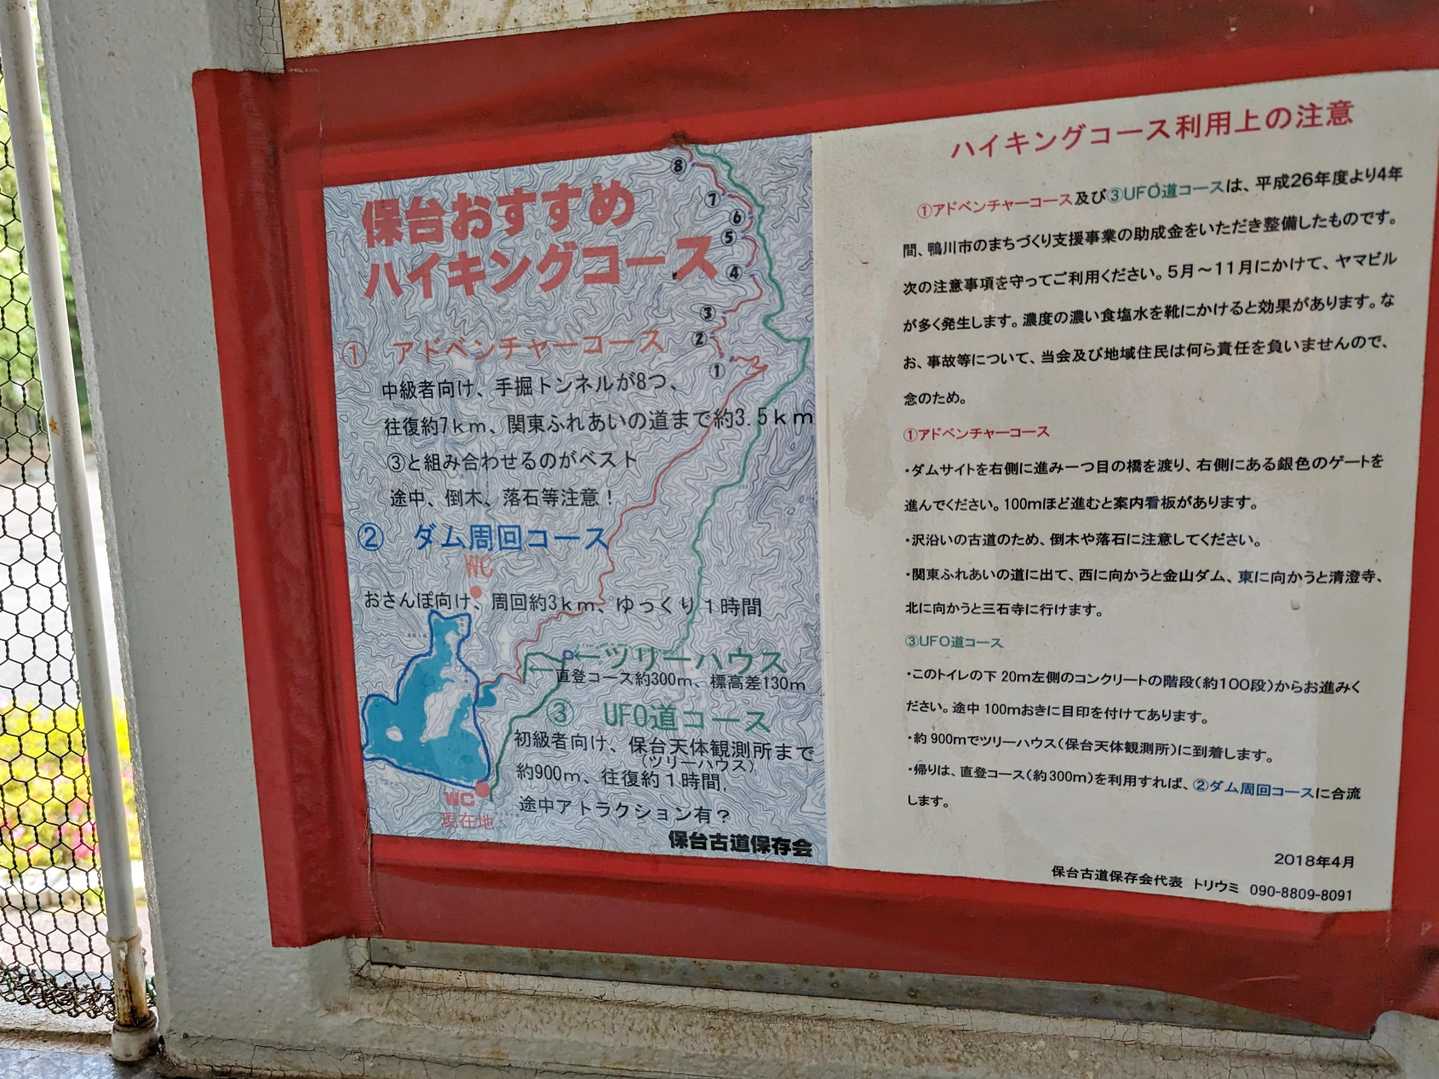 保台おすすめ
ハイキングコース
① アドベンチャーコース
中級者向け、手掘トンネルが8つ、
往復約7km、関東ふれあいの道まで約3.5km
③と組み合わせるのがベスト
途中、倒木、落石等注意！
② ダム周回コース
WC
おさんぽ向け、周回約3km、ゆっくり1時間
←ツリーハウス
直登コース約300m、標高差130m
③ UFO道コース
初級者向け、保台天体観測所まで
(ツリーハウス)
約900m、往復約1時間、
途中アトラクション有？
WC
現在地
保台古道保存会
8
7
6
5
4
3
2
1
ハイキングコース利用上の注意
①アドベンチャーコース及び③UFO道コースは、平成26年度より4年
間、鴨川市のまちづくり支援事業の助成金をいただき整備したものです。
次の注意事項を守ってご利用ください。5月～11月にかけて、ヤマビル
が多く発生します。濃度の濃い食塩水を靴にかけると効果があります。な
お、事故等について、当会及び地域住民は何ら責任を負いませんので、
念のため。
①アドベンチャーコース
・ダムサイトを右側に進み一つ目の橋を渡り、右側にある銀色のゲートを
進んでください。100mほど進むと案内看板があります。
・沢沿いの古道のため、倒木や落石に注意してください。
・関東ふれあいの道に出て、西に向かうと金山ダム、東に向かうと清澄寺、
北に向かうと三石寺に行けます。
③UFO道コース
・このトイレの下20m左側のコンクリートの階段(約100段)からお進みく
ださい。途中100mおきに目印を付けてあります。
・約900mでツリーハウス(保台天体観測所)に到着します。
・帰りは、直登コース(約300m)を利用すれば、②ダム周回コースに合流
します。
2018年4月
保台古道保存会代表 トリウミ 090-8809-8091